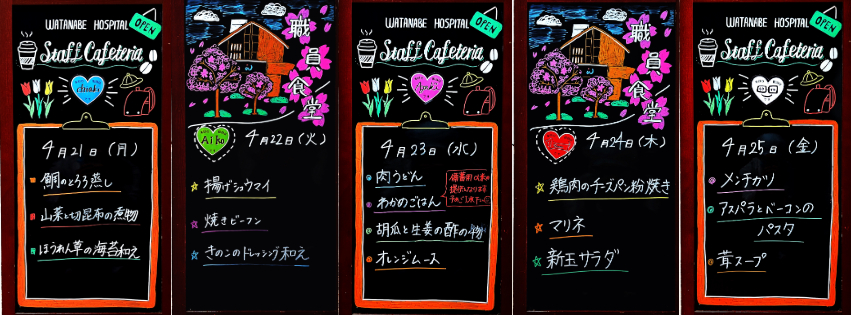 WATANABE HOSPITAL
OPEN
Staff Cafeteria
4月21日(月)
鯛のとろろ蒸し
山菜と切昆布の煮物
ほうれん草の海苔和え
職員食堂
Aiko
4月22日(火)
揚げシュウマイ
焼きビーフン
きのこのドレッシング和え
WATANABE HOSPITAL
OPEN
Staff Cafeteria
4月23日(水)
肉うどん
わかめごはん
胡瓜と生姜の酢の物
オレンジムース
職員食堂
4月24日(木)
鶏肉のチーズパン粉焼き
マリネ
新玉サラダ
WATANABE HOSPITAL
OPEN
Staff Cafeteria
4月25日(金)
メンチカツ
アスパラとベーコンの
パスタ
茸スープ